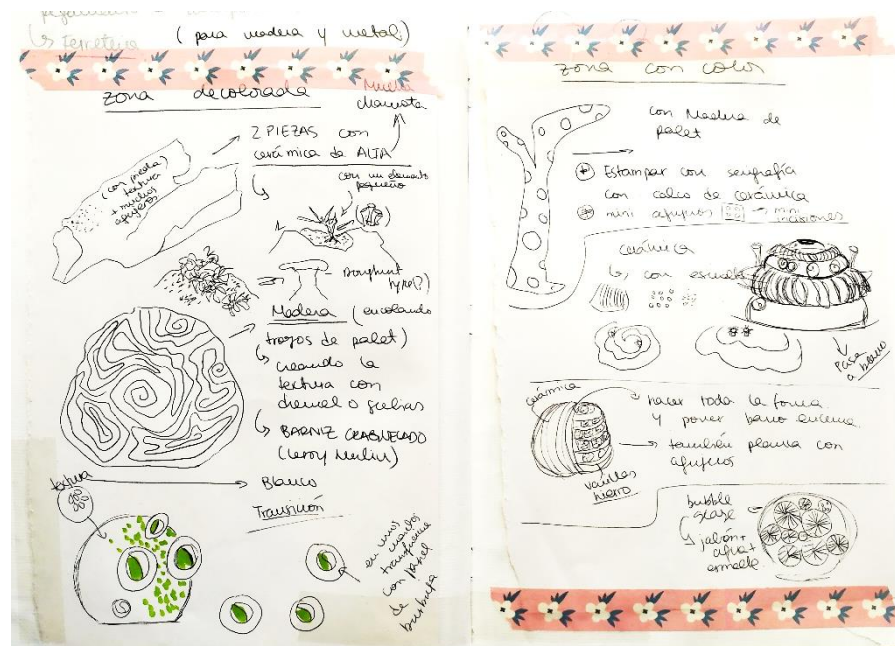 ↳ Ferretería (para madera y metal)
zona decolorada
Mucha
chamota
2 PIEZAS con
cerámica de ALTA
(con media)
textura
+ muchos
agujeros
con un elemento
pequeño
Doughnut
Madera (encolando
trozos de palet)
↳ creando la
textura con
dremel o gubias
↳ BARNIZ CRAQUELADO
(Leroy Merlin)
Blanco
textura
Transición
en unos
transparencia
con papel
de
burbuja
zona con color
con Madera de
palet
Estampar con serigrafía
con calco de cerámica
mini agujeros → mini
incisiones
Cerámica
↳ con esmalte
Pasa
a barro
cerámica
hacer toda la forma
y poner barro encima
→ también plancha con
agujeros
varillas
hierro
bubble
glaze
↳ jabón +
agua +
esmalte